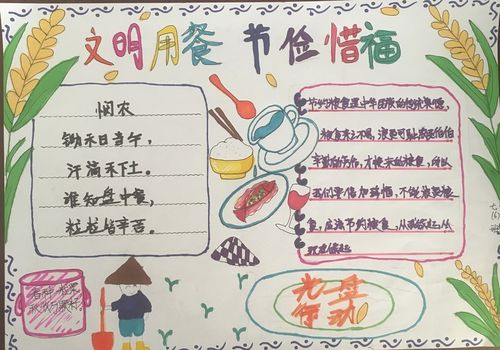 文明用餐 节俭惜福
悯农
锄禾日当午,
汗滴禾下土。
谁知盘中餐,
粒粒皆辛苦。
节约粮食是中华民族的传统美德,
粮食来之不易,浪费可耻,农民伯伯
辛勤的劳作,才换来的粮食,所以
我们要倍加珍惜,不能浪费粮
食,应该节约粮食,从我做起,从
现在做起
光盘
行动